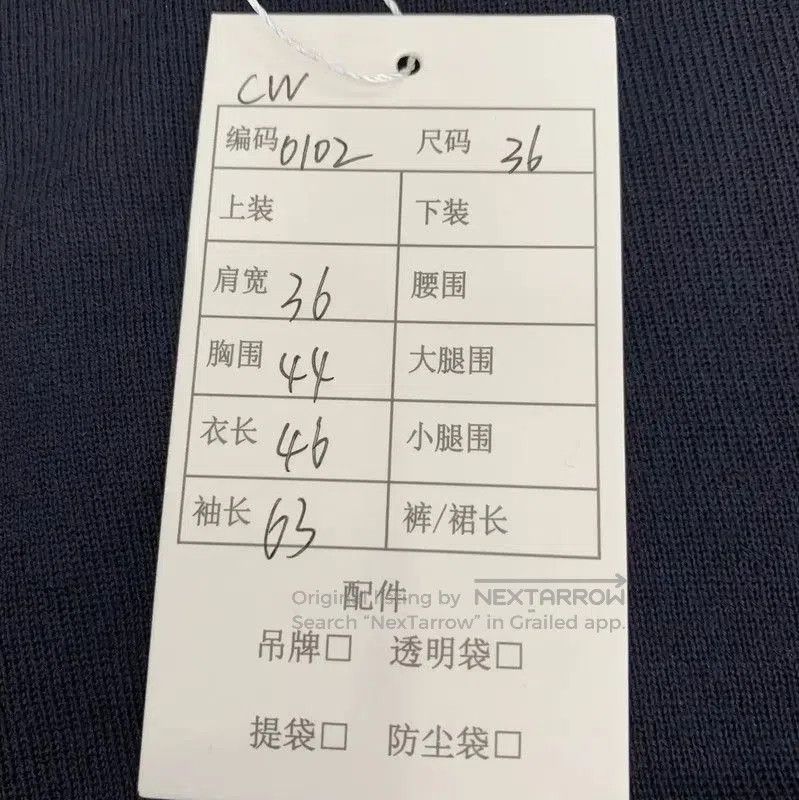 CW
编码 0102 尺码 36
上装 下装
肩宽 36 腰围
胸围 44 大腿围
衣长 46 小腿围
袖长 63 裤/裙长
配件
Original listing by NEXTARROW
Search “NexTarrow” in Grailed app.
吊牌□ 透明袋□
提袋□ 防尘袋□